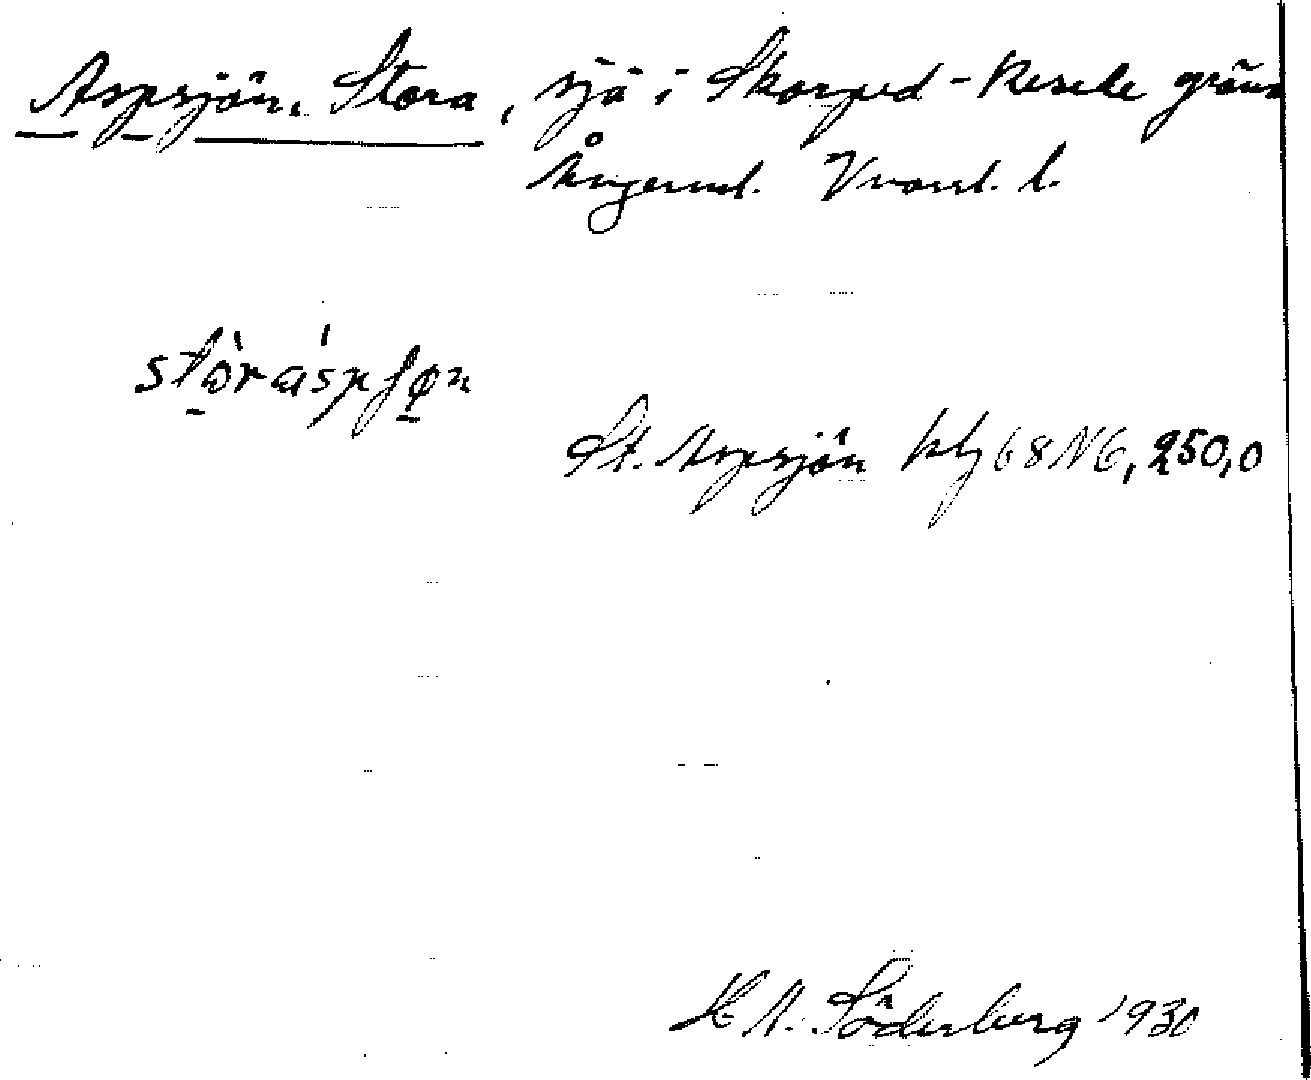 Aspsjön, Stora, sjö i Skorped - Resele gräns
Ångerml. Vnorrl. l.
St. Aspsjön kbl 68 NG, 250,0
H A. Söderberg 1930